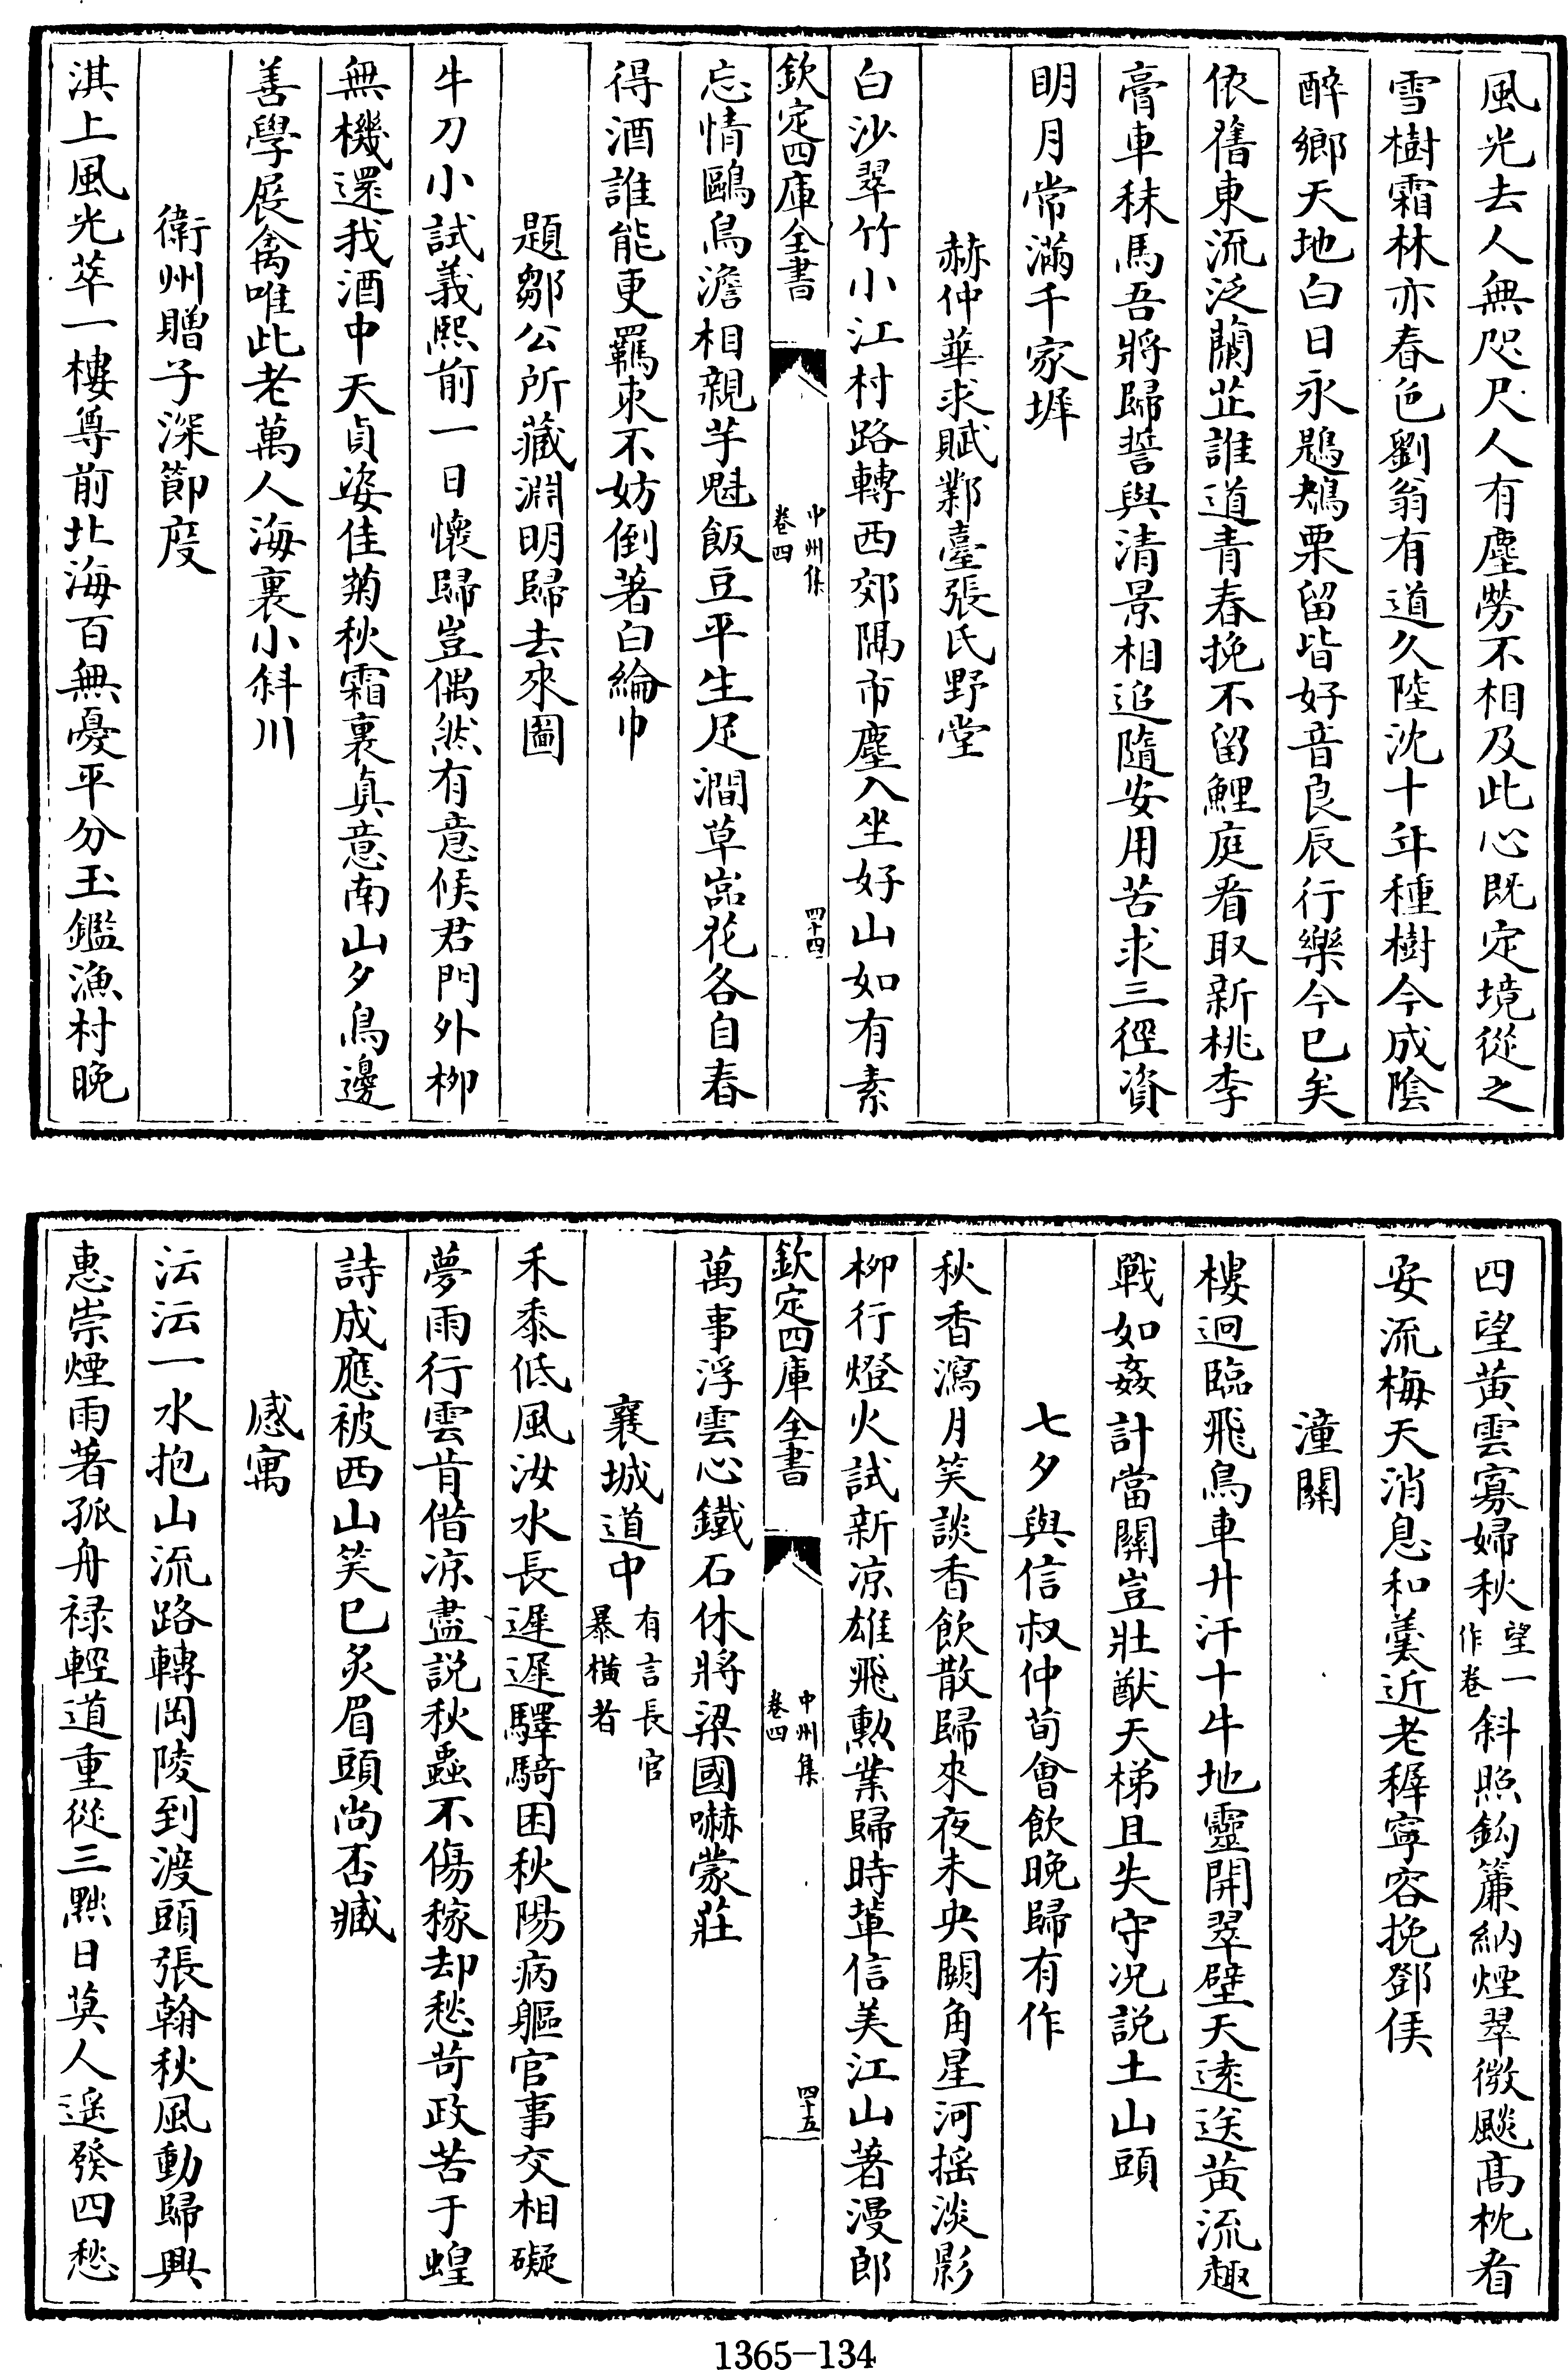 風光去人無咫尺人有塵勞不相及此心既定境從之
雪樹霜林亦春色劉翁有道久陸沈十年種樹今成陰
醉鄉天地白日永鶗鴂栗留皆好音良辰行樂今已矣
依舊東流泛蘭芷誰道青春挽不留鯉庭看取新桃李
膏車秣馬吾將歸誓與清景相追隨安用苦求三徑資
明月常滿千家墀
赫仲華求賦鄴臺張氏野堂
白沙翠竹小江村路轉西郊隔市塵入坐好山如有素
欽定四庫全書
中州集
卷四
四十四
忘情鷗鳥澹相親芋魁飯豆平生足澗草嵓花各自春
得酒誰能更羈束不妨倒著白綸巾
題鄒公所藏淵明歸去來圖
牛刀小試義熙前一日懷歸豈偶然有意候君門外柳
無機還我酒中天貞姿佳菊秋霜裏真意南山夕鳥邊
善學展禽唯此老萬人海裏小斜川
衛州贈子深節度
淇上風光萃一樓尊前北海百無憂平分玉鑑漁村晚
四望黃雲寡婦秋望一作卷斜照鈎簾納煙翠微颷髙枕看
安流梅天消息和羮近老穉寧容挽鄧侯
潼關
樓迥臨飛鳥車廾汗十牛地靈開翠壁天逺送黃流趣
戰如姦計當關豈壯猷天梯且失守况説土山頭
七夕與信叔仲荀會飲晚歸有作
秋香瀉月笑談香飲散歸來夜未央闕角星河摇淡影
柳行燈火試新凉雄飛勲業歸時輩信美江山著漫郎
欽定四庫全書
中州集
卷四
四十五
萬事浮雲心鐵石休將梁國嚇蒙莊
襄城道中有言長官暴橫者
禾黍低風汝水長遲遲驛騎困秋陽病軀官事交相礙
夢雨行雲肯借凉盡説秋蟲不傷稼却愁苛政苦于蝗
詩成應被西山笑已炙眉頭尚否臧
感寓
沄沄一水抱山流路轉岡陵到渡頭張翰秋風動歸興
惠崇煙雨著孤舟禄輕道重從三黜日莫人遥發四愁
1365-134